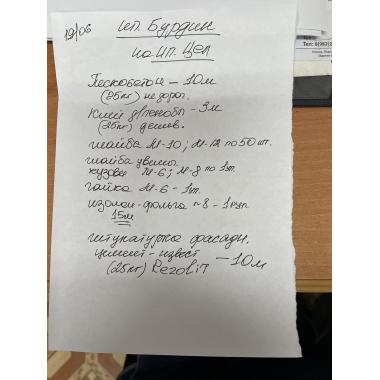 19/06
ип. Бурдик
на ИП. Цел
Пескобетон – 10м
(25кг) недорог.
Клей д/пенобл – 3м
(25кг) дешев.
шайба М-10; М-12 по 50 шт.
шайба увелич.
кузовн М-6; М-8 по 1уп.
гайка М-6 – 1уп.
изолон-фольга ~8 – 1рул
15м
штукатурка фасадн.
цемент-извест
(25кг) Rezolit – 10м